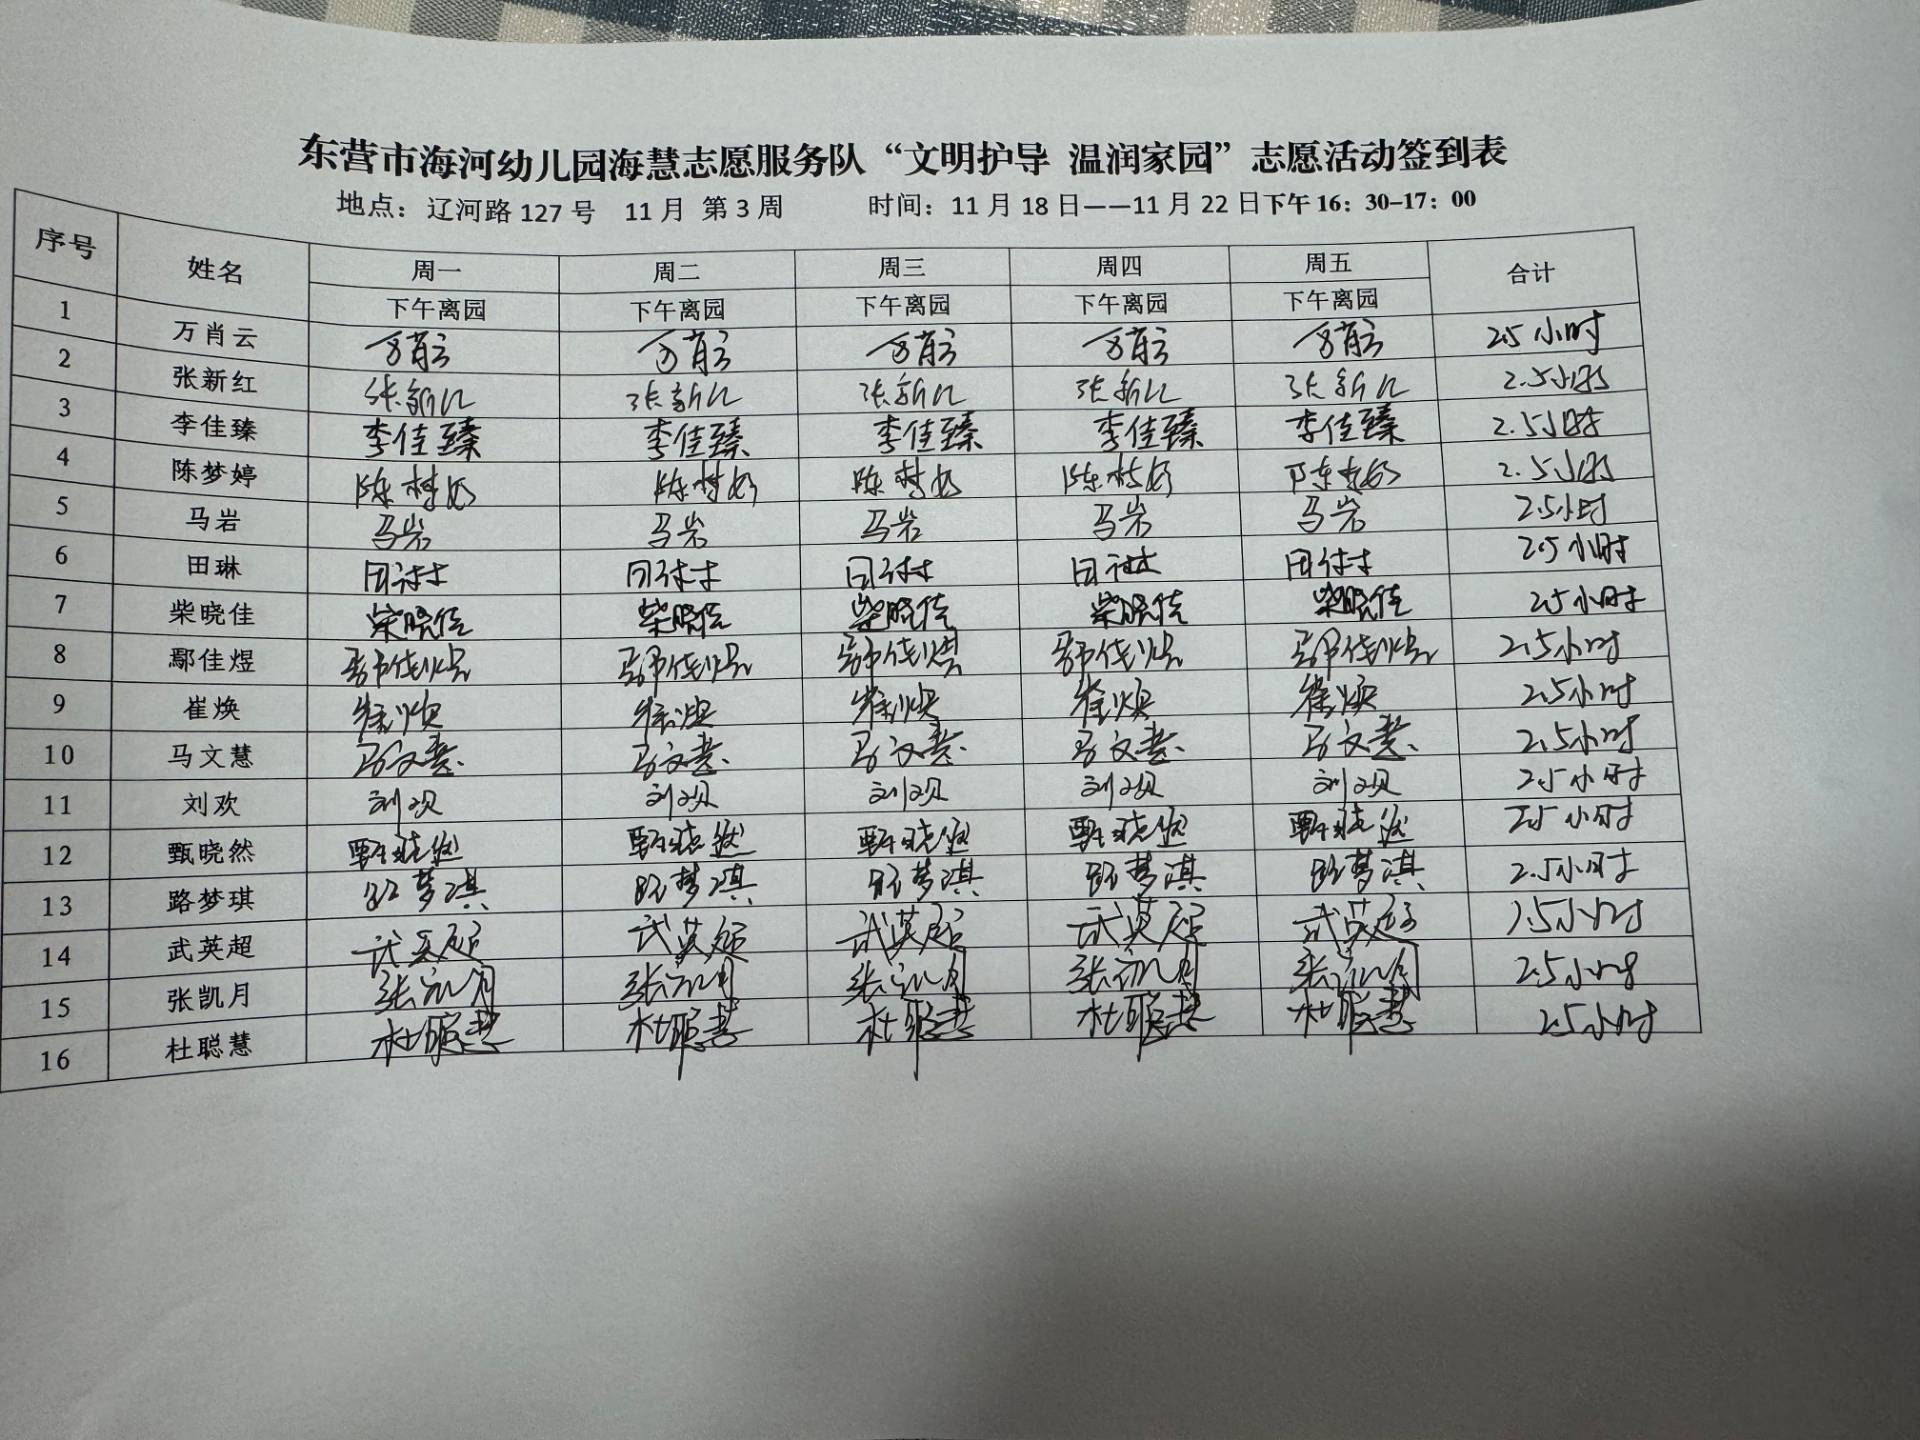 东营市海河幼儿园海慧志愿服务队“文明护导 温润家园”志愿活动签到表
地点：辽河路 127 号 11 月 第 3 周 时间：11 月 18 日——11 月 22 日下午 16：30-17：00
序号 姓名 周一 周二 周三 周四 周五 合计
下午离园 下午离园 下午离园 下午离园 下午离园
1 万肖云 万肖云 万肖云 万肖云 万肖云 万肖云 2.5小时
2 张新红 张新红 张新红 张新红 张新红 张新红 2.5小时
3 李佳臻 李佳臻 李佳臻 李佳臻 李佳臻 李佳臻 2.5小时
4 陈梦婷 陈梦婷 陈梦婷 陈梦婷 陈梦婷 陈梦婷 2.5小时
5 马岩 马岩 马岩 马岩 马岩 马岩 2.5小时
6 田琳 田琳 田琳 田琳 田琳 田琳 2.5小时
7 柴晓佳 柴晓佳 柴晓佳 柴晓佳 柴晓佳 柴晓佳 2.5小时
8 鄢佳煜 鄢佳煜 鄢佳煜 鄢佳煜 鄢佳煜 鄢佳煜 2.5小时
9 崔焕 崔焕 崔焕 崔焕 崔焕 崔焕 2.5小时
10 马文慧 马文慧 马文慧 马文慧 马文慧 马文慧 2.5小时
11 刘欢 刘欢 刘欢 刘欢 刘欢 刘欢 2.5小时
12 甄晓然 甄晓然 甄晓然 甄晓然 甄晓然 甄晓然 2.5小时
13 路梦琪 路梦琪 路梦琪 路梦琪 路梦琪 路梦琪 2.5小时
14 武英超 武英超 武英超 武英超 武英超 武英超 2.5小时
15 张凯月 张凯月 张凯月 张凯月 张凯月 张凯月 2.5小时
16 杜聪慧 杜聪慧 杜聪慧 杜聪慧 杜聪慧 杜聪慧 2.5小时